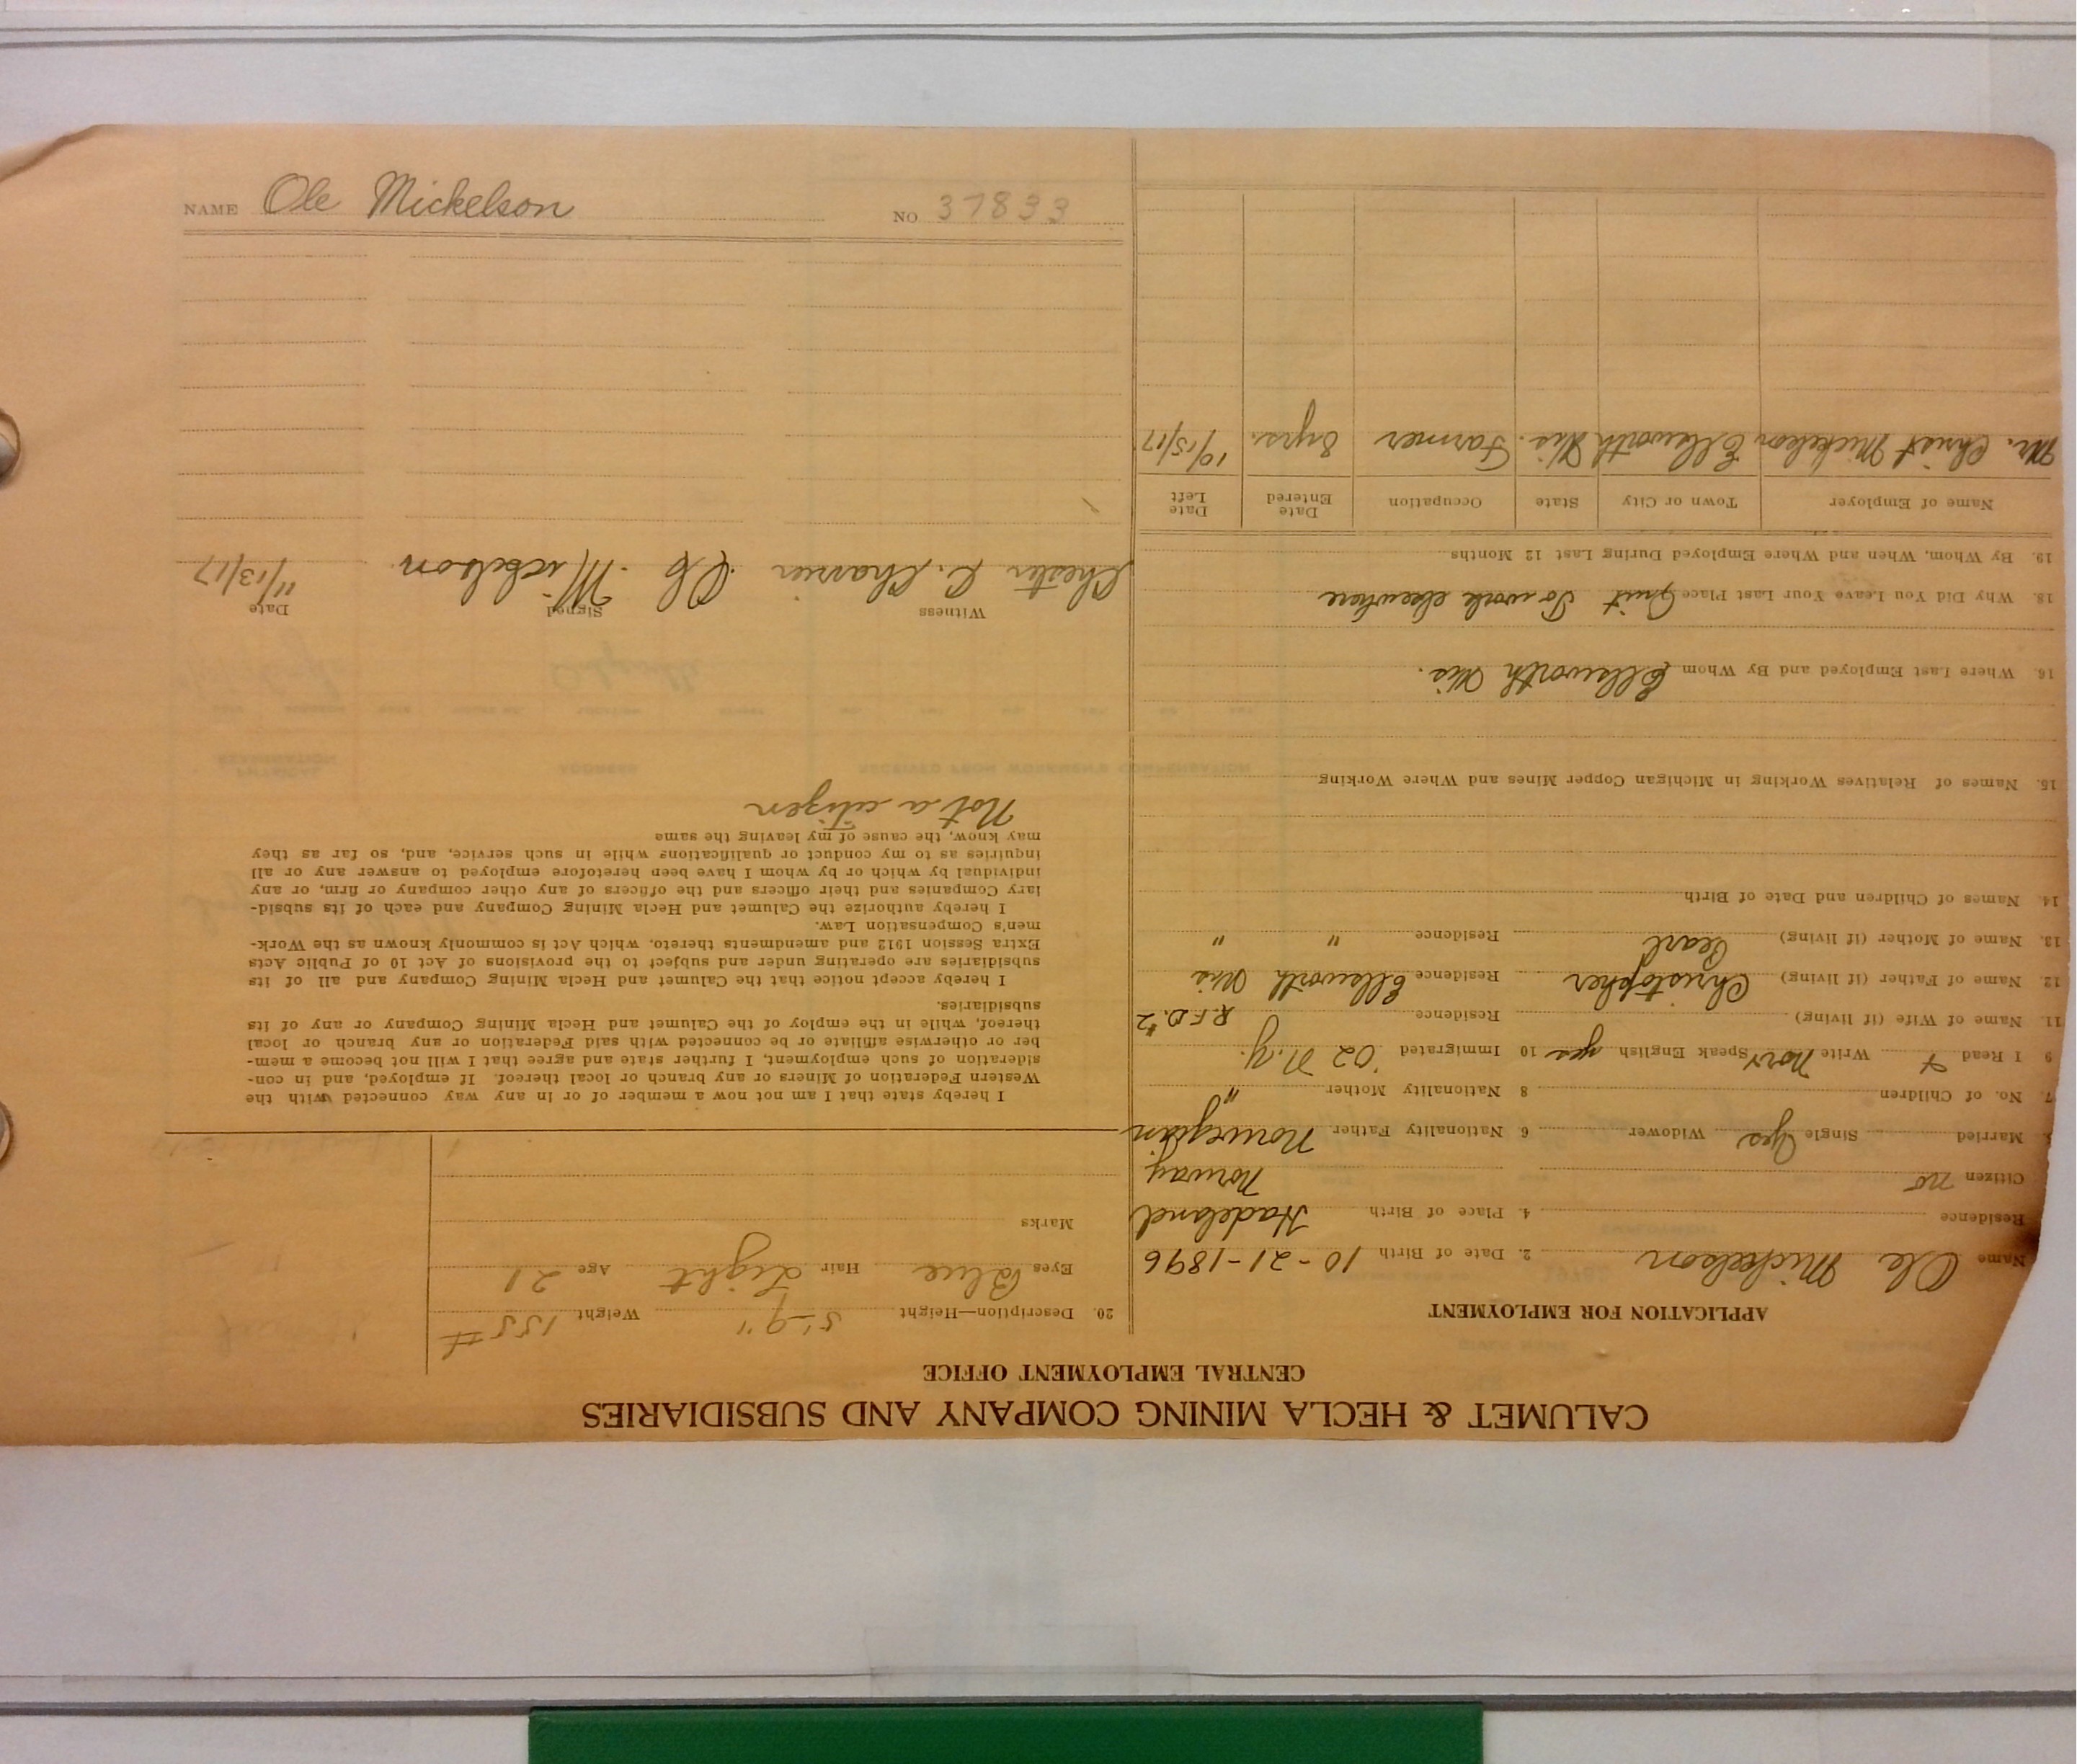 NAME Ole Mickelson NO. 37833
CALUMET & HECLA MINING COMPANY AND SUBSIDIARIES
CENTRAL EMPLOYMENT OFFICE
APPLICATION FOR EMPLOYMENT
Name Ole Mickelson 2. Date of Birth 10-21-1896
Residence 4. Place of Birth Hadeland
Citizen no Norway
Married Single yes Widower 6 Nationality Father Norwegian
7. No. of Children 8 Nationality Mother "
9 I Read + Write Norw Speak English yes 10 Immigrated '02 N.Y.
11. Name of Wife (if living) Residence R.F.D. #2
12. Name of Father (if living) Christopher Residence Ellsworth Wis
13. Name of Mother (if living) Pearl Residence " "
14. Names of Children and Date of Birth
15. Names of Relatives Working in Michigan Copper Mines and Where Working
16. Where Last Employed and By Whom Ellsworth Wis.
18. Why Did You Leave Your Last Place Quit To work elsewhere
19. By Whom, When and Where Employed During Last 12 Months
Name of Employer Town or City State Occupation Date Entered Date Left
Mr. Christ Mickelson Ellsworth Wis. Farmer 8 yrs. 10/15/17
20. Description—Height 5'-9" Weight 155 #
Eyes Blue Hair Light Age 21
Marks
I hereby state that I am not now a member of or in any way connected with the
Western Federation of Miners or any branch or local thereof. If employed, and in con-
sideration of such employment, I further state and agree that I will not become a mem-
ber or otherwise affiliate or be connected with said Federation or any branch or local
thereof, while in the employ of the Calumet and Hecla Mining Company or any of its
subsidiaries.
I hereby accept notice that the Calumet and Hecla Mining Company and all of its
subsidiaries are operating under and subject to the provisions of Act 10 of Public Acts
Extra Session 1912 and amendments thereto, which Act is commonly known as the Work-
men's Compensation Law.
I hereby authorize the Calumet and Hecla Mining Company and each of its subsid-
iary Companies and their officers and the officers of any other company or firm, or any
individual by which or by whom I have been heretofore employed to answer any or all
inquiries as to my conduct or qualifications while in such service, and, so far as they
may know, the cause of my leaving the same
Not a citizen
Witness Signed Date
Chester C. Charrier Ole Mickelson 11/13/17